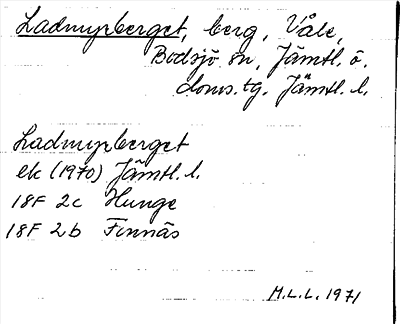 Ladmyrberget, berg, Våle,
Bodsjö sn, Jämtl. ö.
doms.tg. Jämtl. l.
Ladmyrberget
ek (1970) Jämtl. l.
18F 2c Hunge
18F 2b Finnäs
M.L.L. 1971